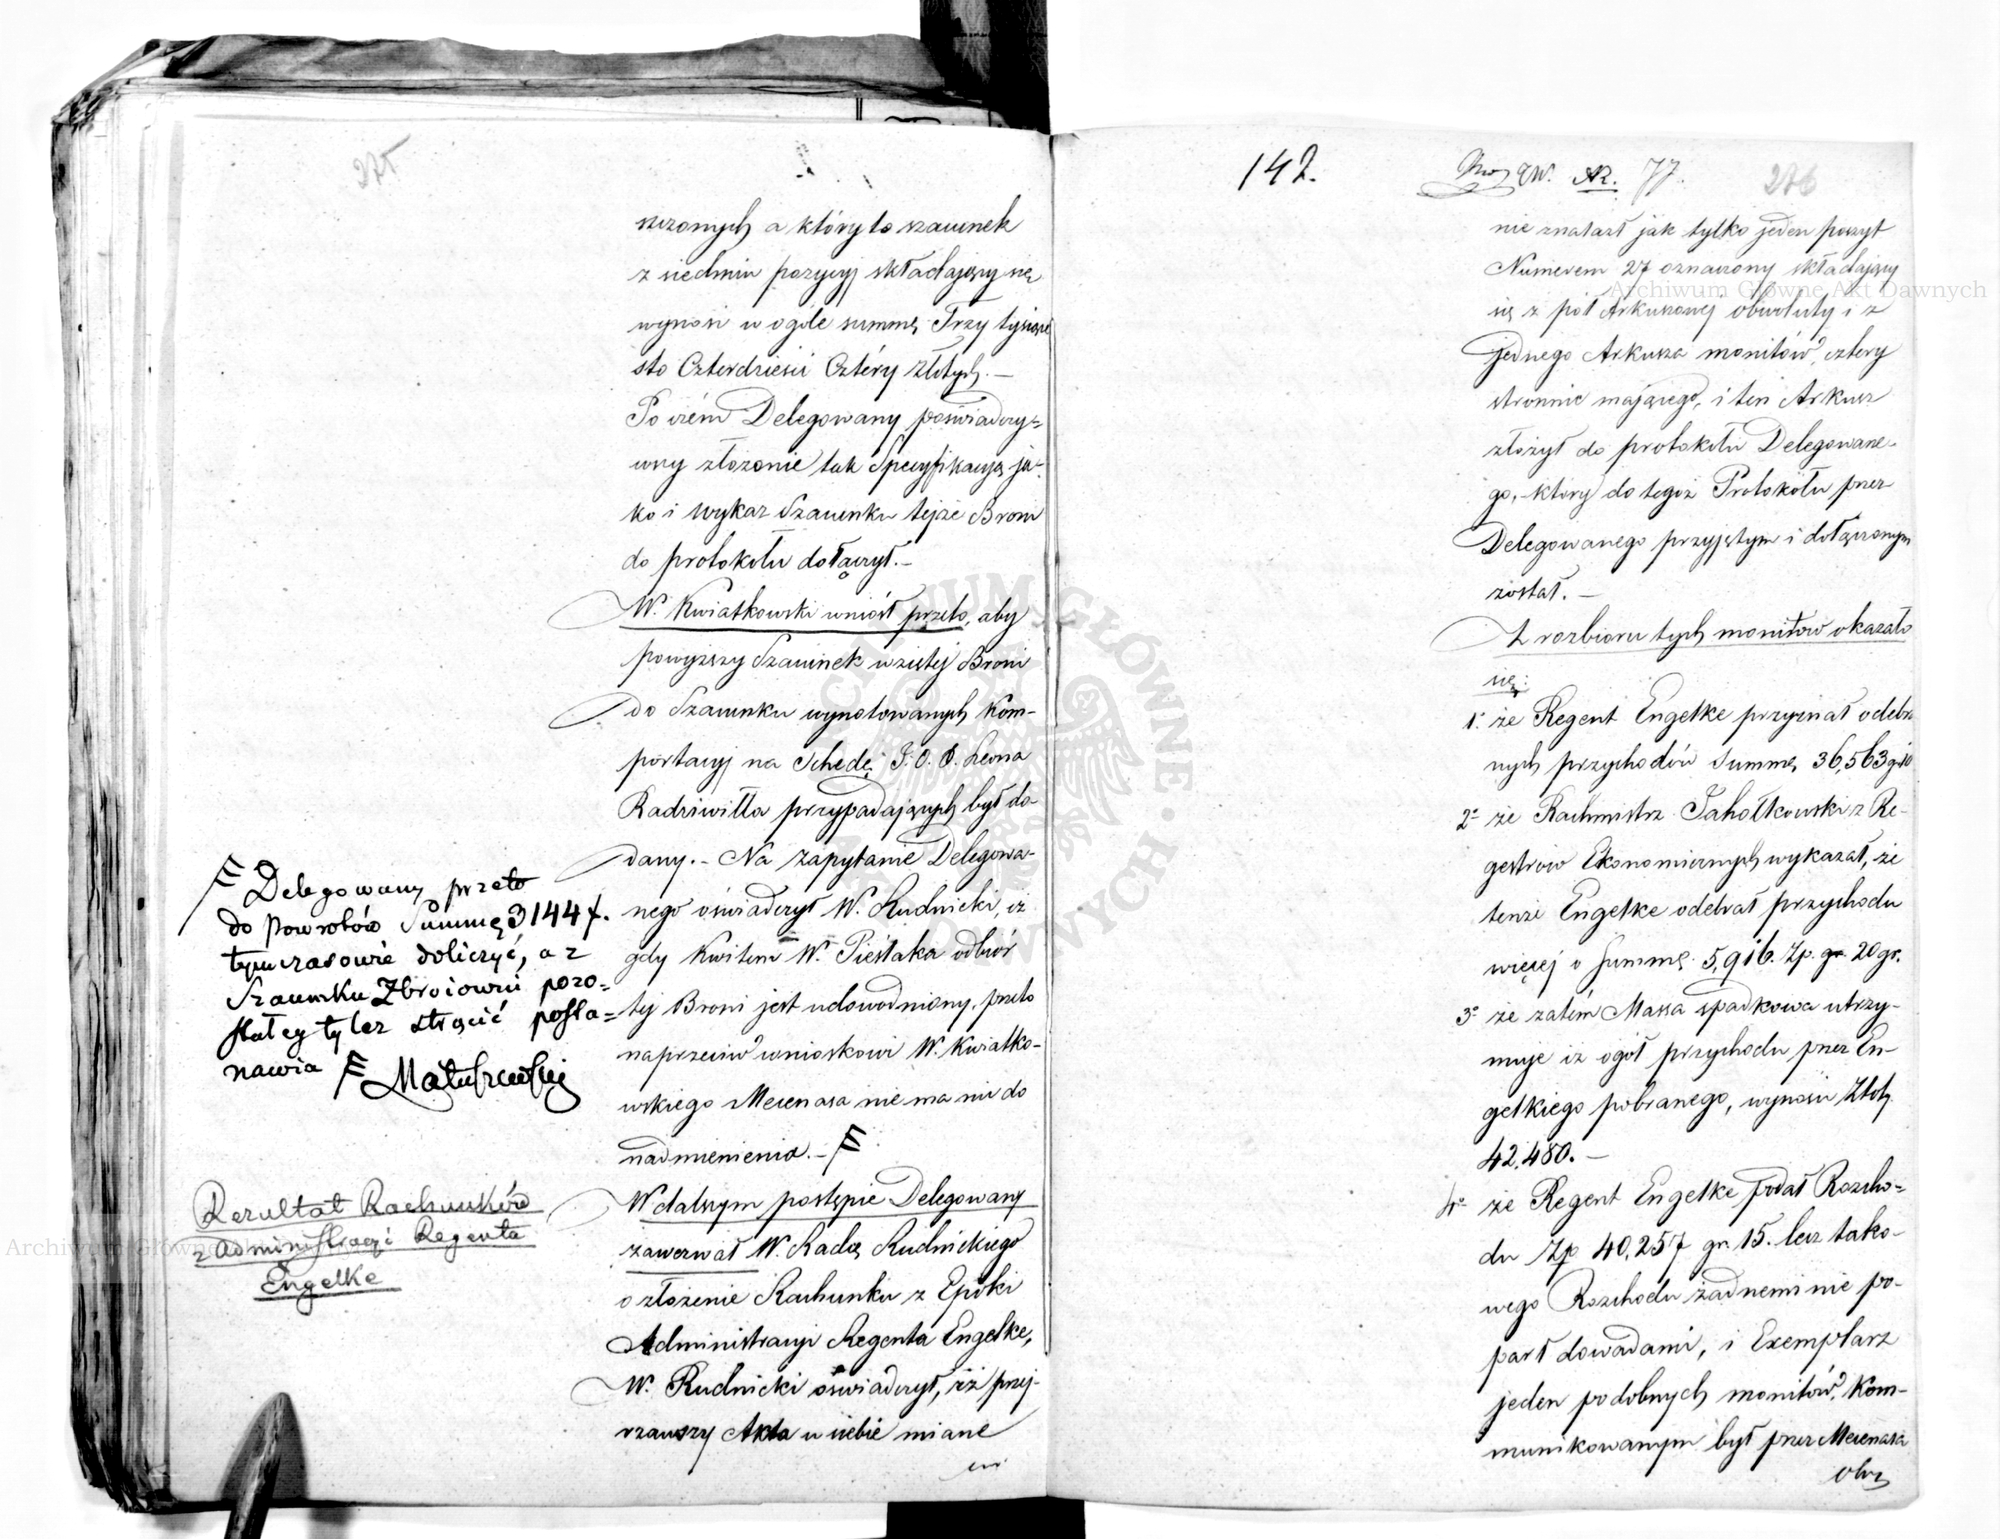 275
szczonych a który to szacunek
z siedmiu pozycyj składający się
wynosi w ogóle summę Trzy tysiące
sto Czterdzieści Cztéry złotych. —
Po czém Delegowany poświadczy=
wszy złożenie tak Specyfikacyą ja-
ko i wykaz Szacunku tejże Broni
do protokółu dołączył. —
W. Kwiatkowski wniósł przeto, aby
powyższy Szacunek wziętéj Broni
do Szacunku wynotowanych Kom-
portacyj na Schedę J. O. X. Leona
Radziwiłła przypadających był do-
dany. — Na zapytanie Delegowa-
nego oświadczył W. Rudnicki, iż
gdy Kwitem W. Pieślaka odbiór
tej Broni jest udowodniony, przeto
naprzeciw wnioskowi W. Kwiatko-
wskiego Mecenasa nie ma nic do
nadmienienia. —
Delegowany przeto
do powrotów Summę 3144 f.
tymczasowie doliczyć, a z
Szacunku Zbroiowni pozo=
stałey tylez strącić posta=
nawia
Matuszewski
Rezultat Rachunków
z Administracyi Regenta
Engelke
W dalszym postępie Delegowany
zawezwał W. Radcę Rudnickiego
o złożenie Rachunku z Epoki
Administracyi Regenta Engelke,
W. Rudnicki oświadczył, iż przej-
rzawszy Akta u siebie miane
nie
142. AR. 77. 276
nie znalazł jak tylko jeden poszyt
Numerem 27 oznaczony składający
się z pół Arkuszowej obwoluty i z
jednego Arkusza monitów, cztery
stronnic mającego, i ten Arkusz
złożył do protokółu Delegowane-
go, który do tegoż Protokółu przez
Delegowanego przyjętym i dołączonym
został. —
Z rozbioru tych monitów okazało
się:
1o że Regent Engelke przyznał odebra
nych przychodów Summę 36,563 gr 10
2o że Rachmistrz Jahołkowski z Re-
gestrów Ekonomicznych wykazał, że
tenże Engelke odebrał przychodu
więcej o Summę 5,916. Zp. gr. 20 gr.
3o że zatém Massa spadkowa utrzy-
muje iż ogół przychodu przez En-
gelkiego pobranego, wynosi Złoty
42,480. —
4o że Regent Engelke podał Rozcho=
du Zp 40,257 gr. 15. lecz tako-
wego Rozchodu żadnemi nie po-
parł dowodami, i Exemplarz
jeden podobnych monitów, Kom-
munikowanym był przez Mecenasa
Archiwum Główne Akt Dawnych
Archiwum Główne
ARCHIWUM GŁÓWNE · AKT DAWNYCH ·